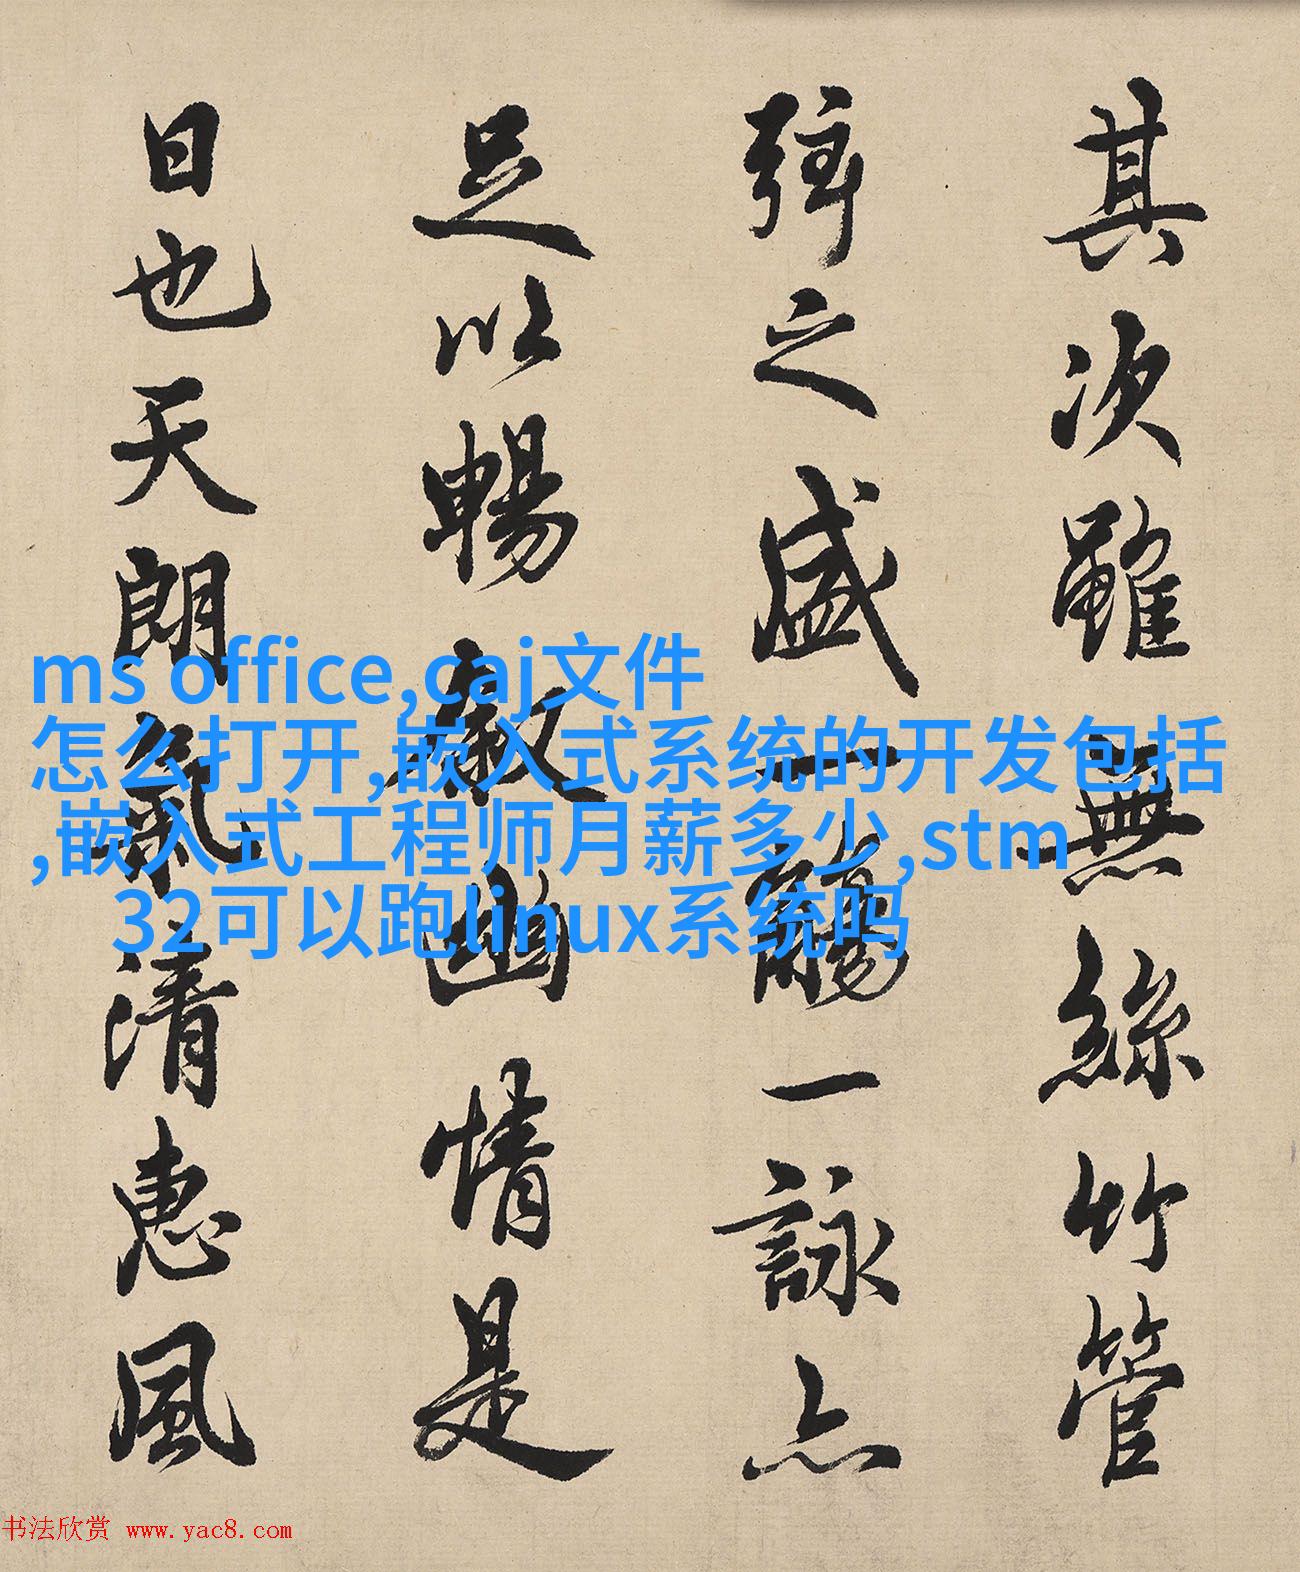 其次雖無絲竹管
弦之盛一觴一詠亦
足以暢敘幽情是
日也天朗氣清惠風
ms office,caj文件
怎么打开,嵌入式系统的开发包括
,嵌入式工程师月薪多少,stm
32可以跑linux系统吗
书法欣赏 www.yac8.com